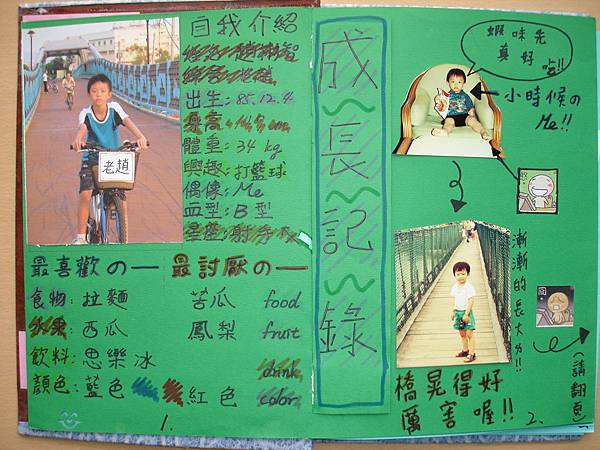 自我介紹
出生:85.12.4
身高:
體重:34 kg
興趣:打籃球
偶像:Me
血型:B型
星座:射手
老趙
最喜歡の一
最討厭の一
食物:拉麵
苦瓜
food
水果:西瓜
鳳梨
fruit
飲料:思樂冰
drink
顏色:藍色
紅色
color
1.
成長記錄
蝦味先
真好
吃!!
小時候の
Me!!
漸漸的長大ㄌ!!
橋晃得好
厲害喔!!
2.
(請翻頁)